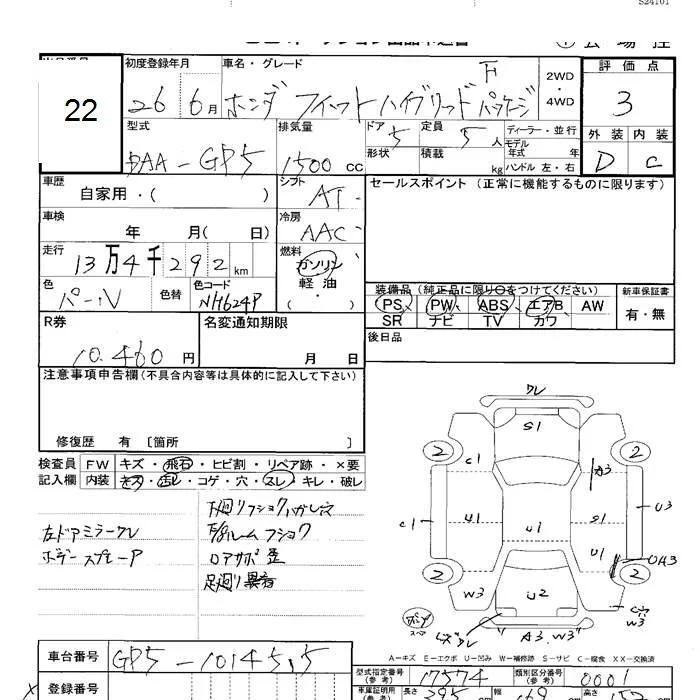 S24101
22
初度登録年月 車名・グレード 評価点
26年 6月 ホンダ フィットハイブリッド Fパッケージ 2WD・4WD 3
型式 排気量 ドア 定員 ディーラー・並行 外装 内装
DAA-GP5 1500cc 5 5人 モデル年式 年 D C
形状 積載 kg ハンドル 左・右
車歴 自家用・( ) シフト AT セールスポイント (正常に機能するものに限ります)
車検 年 月( 日) 冷房 AAC
走行 13万4千292km 燃料 ガソリン・軽油・( )
色 パール 色替 色コード NH624P
装備品 (純正品に限り○をつけてください) 新車保証書
PS PW ABS エアB AW 有・無
SR ナビ TV カワ
R券 10.460円 名変通知期限 月 日 後日品
注意事項申告欄(不具合内容等は具体的に記入して下さい)
修復歴 有 〔箇所 〕
検査員記入欄 FW キズ・飛石・ヒビ割・リペア跡・×要
内装 キズ・汚レ・コゲ・穴・スレ・キレ・破レ
左ドアミラーワレ
ボデースプレーP
下廻リフショク
ルームフショク
ロアサポ歪
足廻リ異音
ワレ
S1
2 2
C1 A3
C1 U1 U1 S1 U3
U1 UA3
2 2
W3 U2 C穴 W3
スペア
"A3.W3"
A-キズ E-エクボ U-凹み W-補修跡 S-サビ C-腐食 XX-交換済
車台番号 GP5-1014
登録番号
型式指定番号(参考) 17574 類別区分番号(参考) 0001
車庫証明用(参考) 長さ 395 幅 169 高さ 152